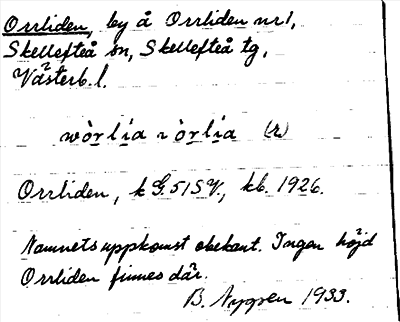 Orrliden, by å Orrliden nr 1,
Skellefteå sn, Skellefteå tg,
Västerb. l.
wòrlia ròrlia (r)
Orrliden, k G. 51 S V, kb. 1926.
Namnets uppkomst obekant. Ingen höjd
Orrliden finnes där.
B. Nygren 1933.